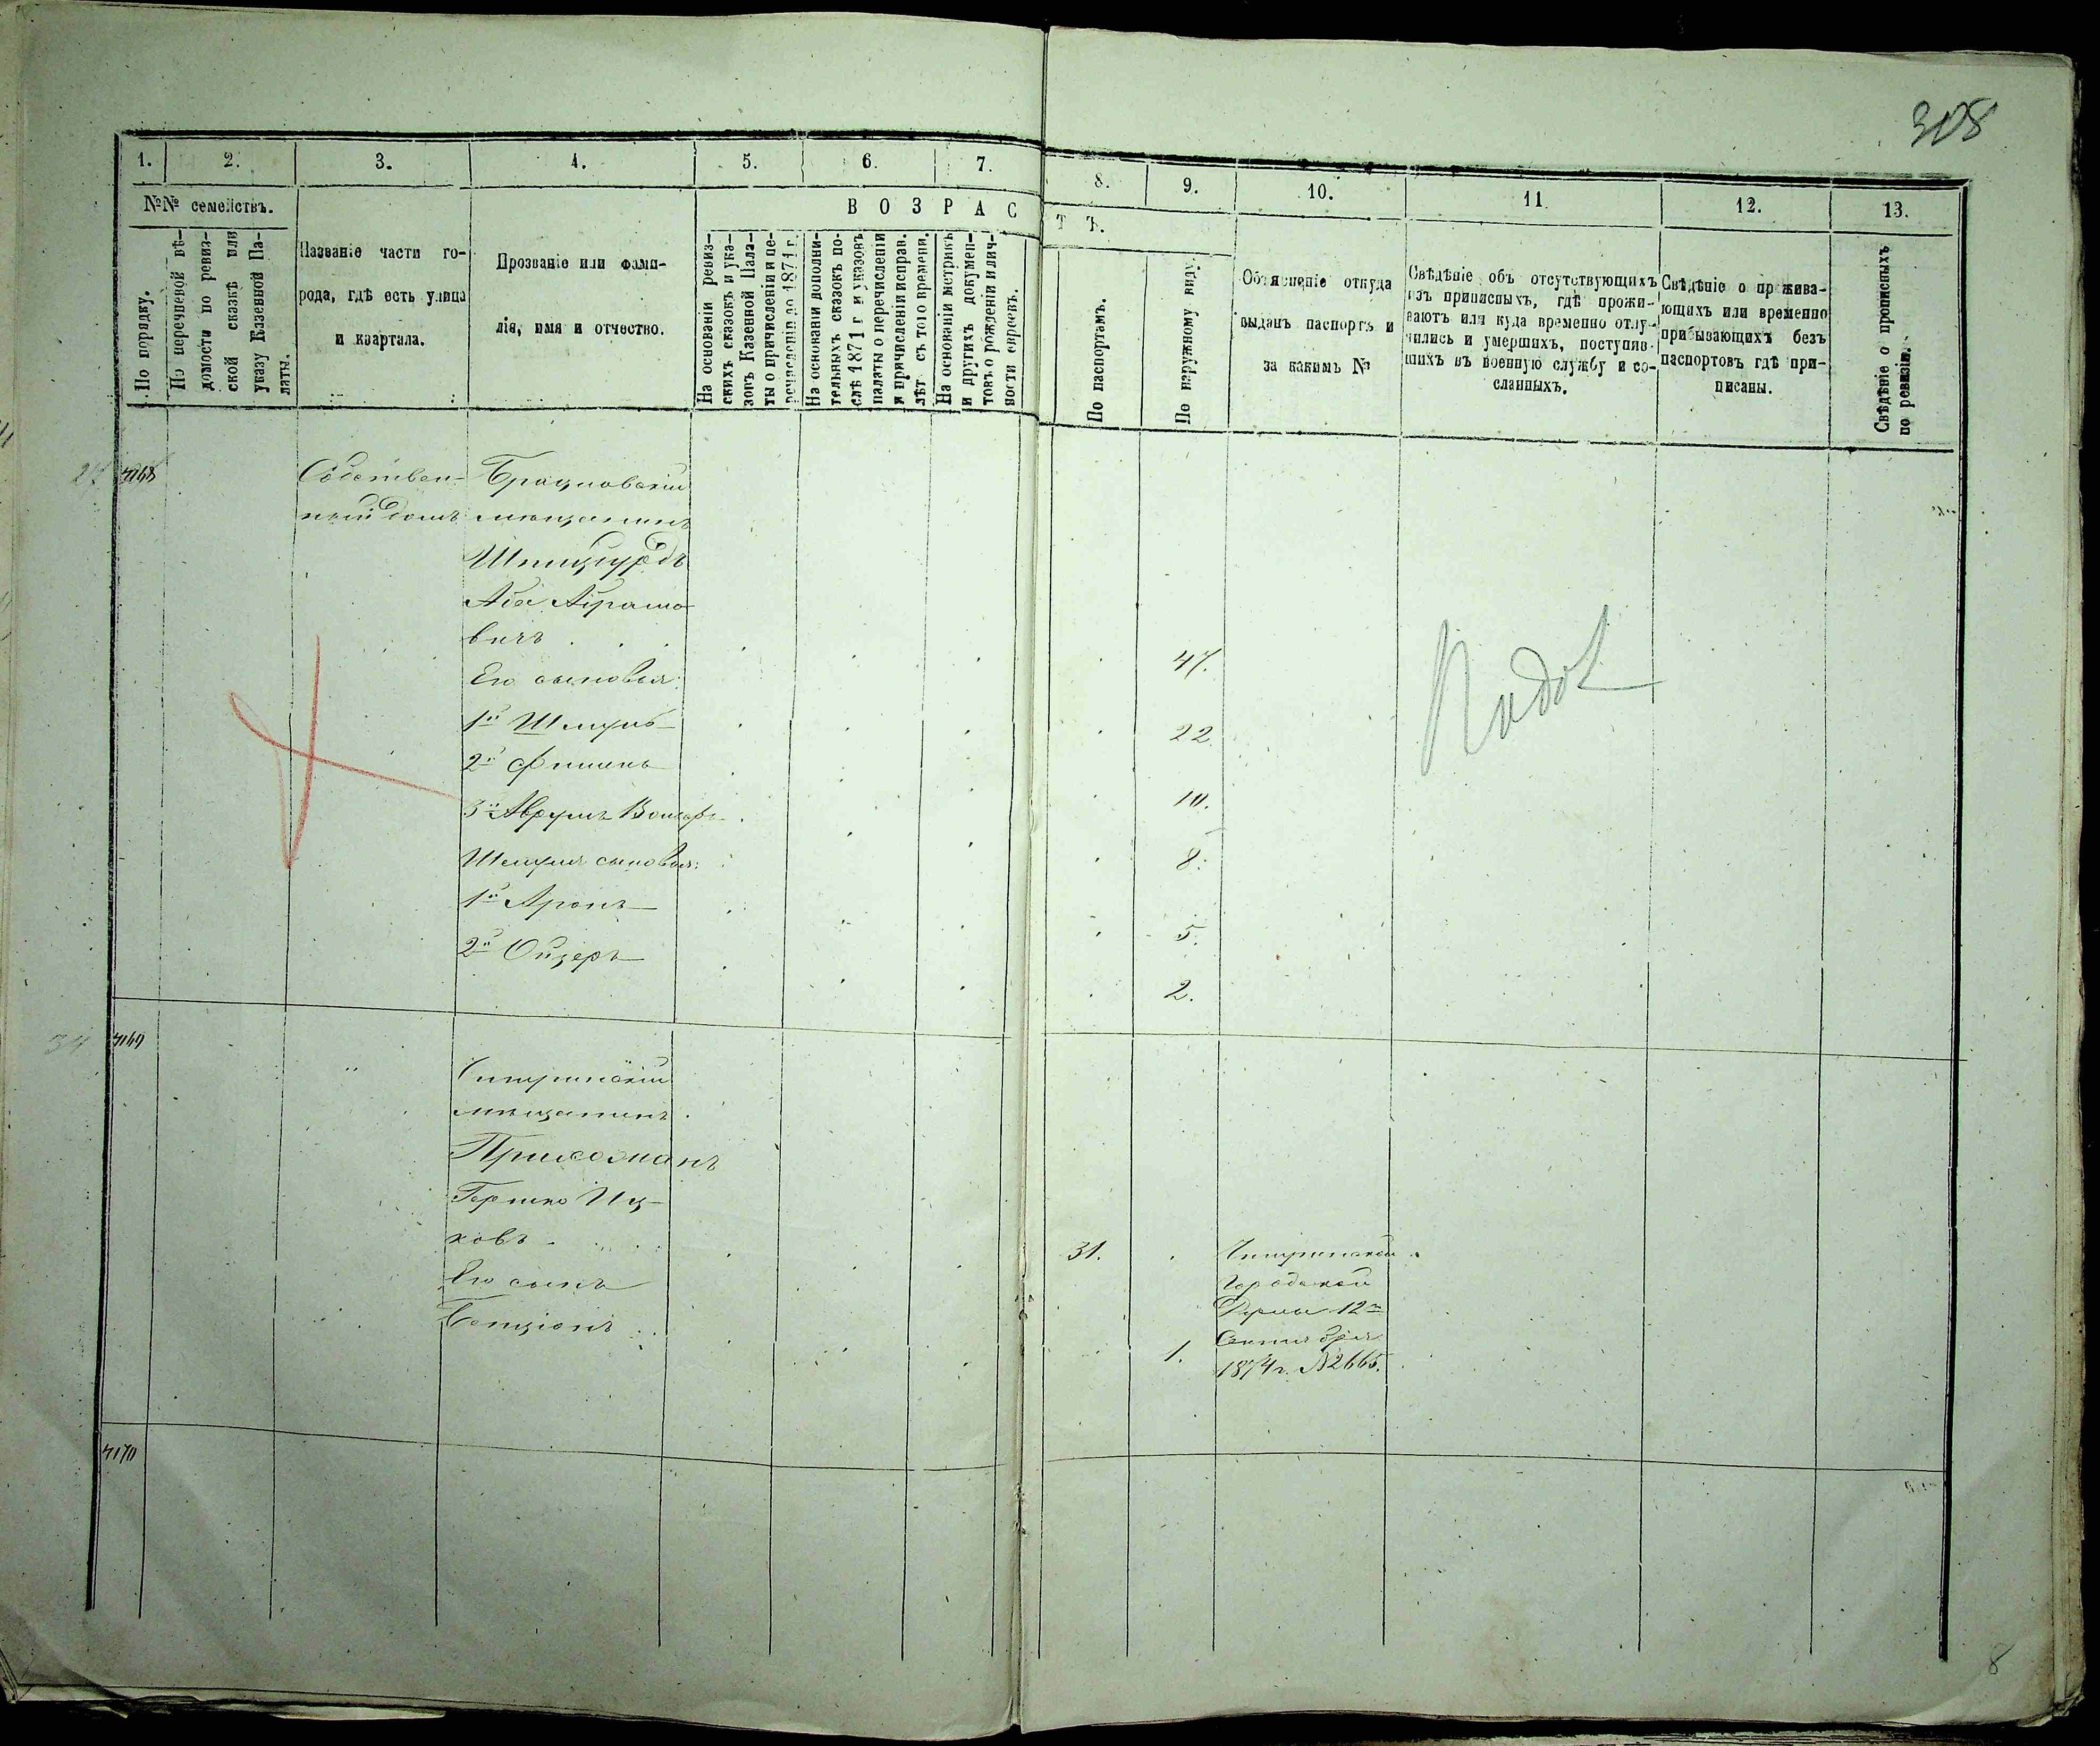 308
1. 2. 3. 4. 5. 6. 7. 8. 9. 10. 11. 12. 13.
№№ семействъ.
В О З Р А С Т Ъ.
По порядку.
По перечневой вѣ-
домости по ревиз-
ской сказкѣ или
указу Казенной Па-
латы.
Названіе части го-
рода, гдѣ есть улица
и квартала.
Прозваніе или фами-
лія, имя и отчество.
На основаніи ревиз-
скихъ сказокъ и ука-
зовъ Казенной Пала-
ты о причисленіи и пе-
речисленіи до 1871 г.
На основаніи дополни-
тельныхъ сказокъ по-
слѣ 1871 г. и указовъ
палаты о перечисленіи
и причисленіи исправ.
лѣт съ того времени.
На основаніи метрикъ
и другихъ докумен-
товъ о рожденіи и лич-
ности евреевъ.
По паспортамъ.
По наружному виду.
Объясненіе откуда
выданъ паспортъ и
за какимъ №
Свѣдѣніе объ отсутствующихъ
изъ приписныхъ, гдѣ прожи-
ваютъ или куда временно отлу-
чились и умершихъ, поступив-
шихъ въ военную службу и со-
сланныхъ.
Свѣдѣніе о прожива-
ющихъ или временно
прибывающихъ безъ
паспортовъ гдѣ при-
писаны.
Свѣдѣніе о прописныхъ
по ревизіи.
4168
Собствен-
ный домъ
Брацловскій
мѣщанинъ
Шпицгурдъ
Аба Абрамо-
вичъ 47.
Его сыновья:
1й Шмуль 22
2й Фишель 10.
3й Аврумъ Вольфъ 8.
Шмуля сыновья:
1й Аронъ 5.
2й Ойзеръ 2.
4169
мѣщанинъ
Гершко Иц-
ковъ 31.
Его сынъ
Бенціонъ 1.
Городской
Думы 12го
Сентября
1874 г. №2665.
4170
8